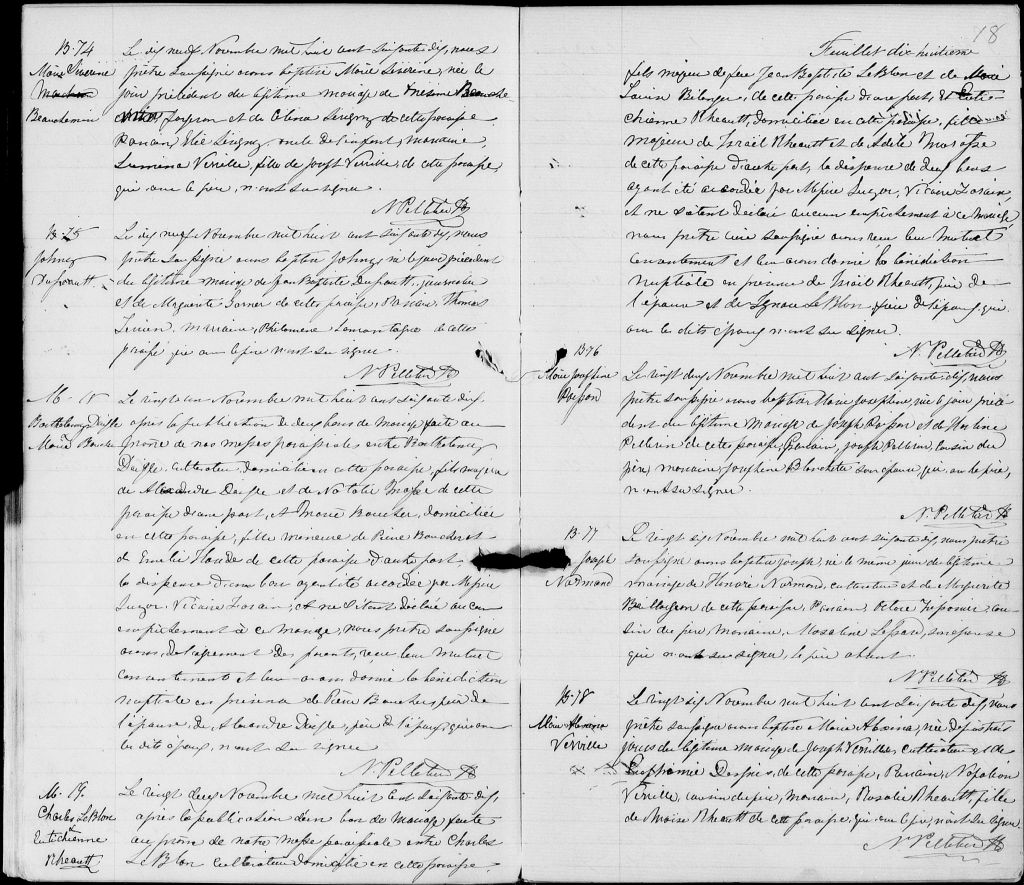 B-74
Marie Séverine
Beauchemin
Le dix neuf Novembre mil huit cent soixante dix, nous
prêtre soussigné avons baptisé Marie Séverine, née le
jour précédent du légitime mariage de Beauche-
et de de cette paroisse
Parrain, oncle de l'enfant, marraine,
Verville, fille de Joseph Verville, de cette paroisse,
qui avec le père, n'ont su signer.
N. Pelletier Ptr
B-75
Johnny
Le dix neuf Novembre mil huit cent soixante dix, nous
prêtre soussigné avons baptisé Johnny, né le jour précédent
du légitime mariage de Jean Baptiste journalier
et de Marguerite de cette paroisse, Parrain, Thomas
marraine, Philomène Lamontagne de cette
paroisse qui avec le père n'ont su signer.
N. Pelletier Ptr
M-18
Barthelemy Daigle
Marie Boucher
Le vingt un Novembre mil huit cent soixante dix,
après la publication de deux bans de mariage faite au
prône de nos messes paroissiales entre Barthelemy
Daigle, cultivateur, domicilié en cette paroisse, fils majeur
de Alexandre Daigle et de Natalie Masse de cette
paroisse d'une part, et Marie Boucher, domiciliée
en cette paroisse, fille mineure de Pierre Boucher et
de Emilie Houde de cette paroisse d'autre part
la dispense d'un ban ayant été accordée par Messire
Suzor, Vicaire Forain, et ne s'étant déclaré aucun
empêchement à ce mariage, nous prêtre soussigné
avons, du agrément des parents, reçu leur mutuel
consentement et leur avons donné la bénédiction
nuptiale en présence de Pierre Boucher père de
l'épouse, de Alexandre Daigle, père de l'époux, qui avec
les dits époux, n'ont su signer
N. Pelletier Ptr
M-19.
Charles LeBlon
&
Eutichienne
Rheault
Le vingt deux Novembre mil huit cent soixante dix,
après la publication d'un ban de mariage, faite
au prône de notre messe paroissiale entre Charles
LeBlon cultivateur domicilié en cette paroisse,
18
Feuillet dix huitième
fils majeur de feu Jean Baptiste LeBlon et de Marie
Louise Bélanger, de cette paroisse d'une part, et Euti-
chienne Rheault, domiciliée en cette paroisse, fille
majeure de Israël Rheault et de Adèle
de cette paroisse d'autre part, la dispense de deux bans
ayant été accordée par Messire Suzor, Vicaire Forain,
et ne s'étant déclaré aucun empêchement à ce mariage
nous prêtre curé soussigné avons reçu leur mutuel
consentement et leur avons donné la bénédiction
nuptiale en présence de Israël Rheault, père de
l'épouse et de Ignace LeBlon frère de l'époux, qui
avec les dits époux n'ont su signer.
N. Pelletier Ptr
B-76
Marie Josephine
Poisson
Le vingt deux Novembre mil huit cent soixante dix, nous
prêtre soussigné avons baptisé Marie Josephine, née le jour précé-
dent du légitime mariage de Joseph Poisson et de
Pellerin de cette paroisse, Parrain, Joseph Pellerin, cousin du
père, marraine Josephine Blanchette son épouse, qui avec le père,
n'ont su signer.
N. Pelletier Ptr
B-77
Joseph
Normand
Le vingt six Novembre mil huit cent soixante dix, nous prêtre
soussigné avons baptisé Joseph, né le même jour du légitime
mariage de Honoré Normand, cultivateur et de Marguerite
Baillargeon de cette paroisse, Parrain, cou-
sin du père, Marraine, son épouse
qui n'ont su signer, le père absent.
N. Pelletier Ptr
B-78
Marie
Verville
Le vingt six Novembre mil huit cent soixante dix, nous
prêtre soussigné avons baptisé Marie née depuis
jours du légitime mariage de Joseph Verville, cultivateur et de
Euphémie de cette paroisse, Parrain, Napoléon
Verville, cousin du père, marraine, Rosalie Rheault, fille
de Moise Rheault de cette paroisse, qui avec le père, n'ont su signer
N. Pelletier Ptr